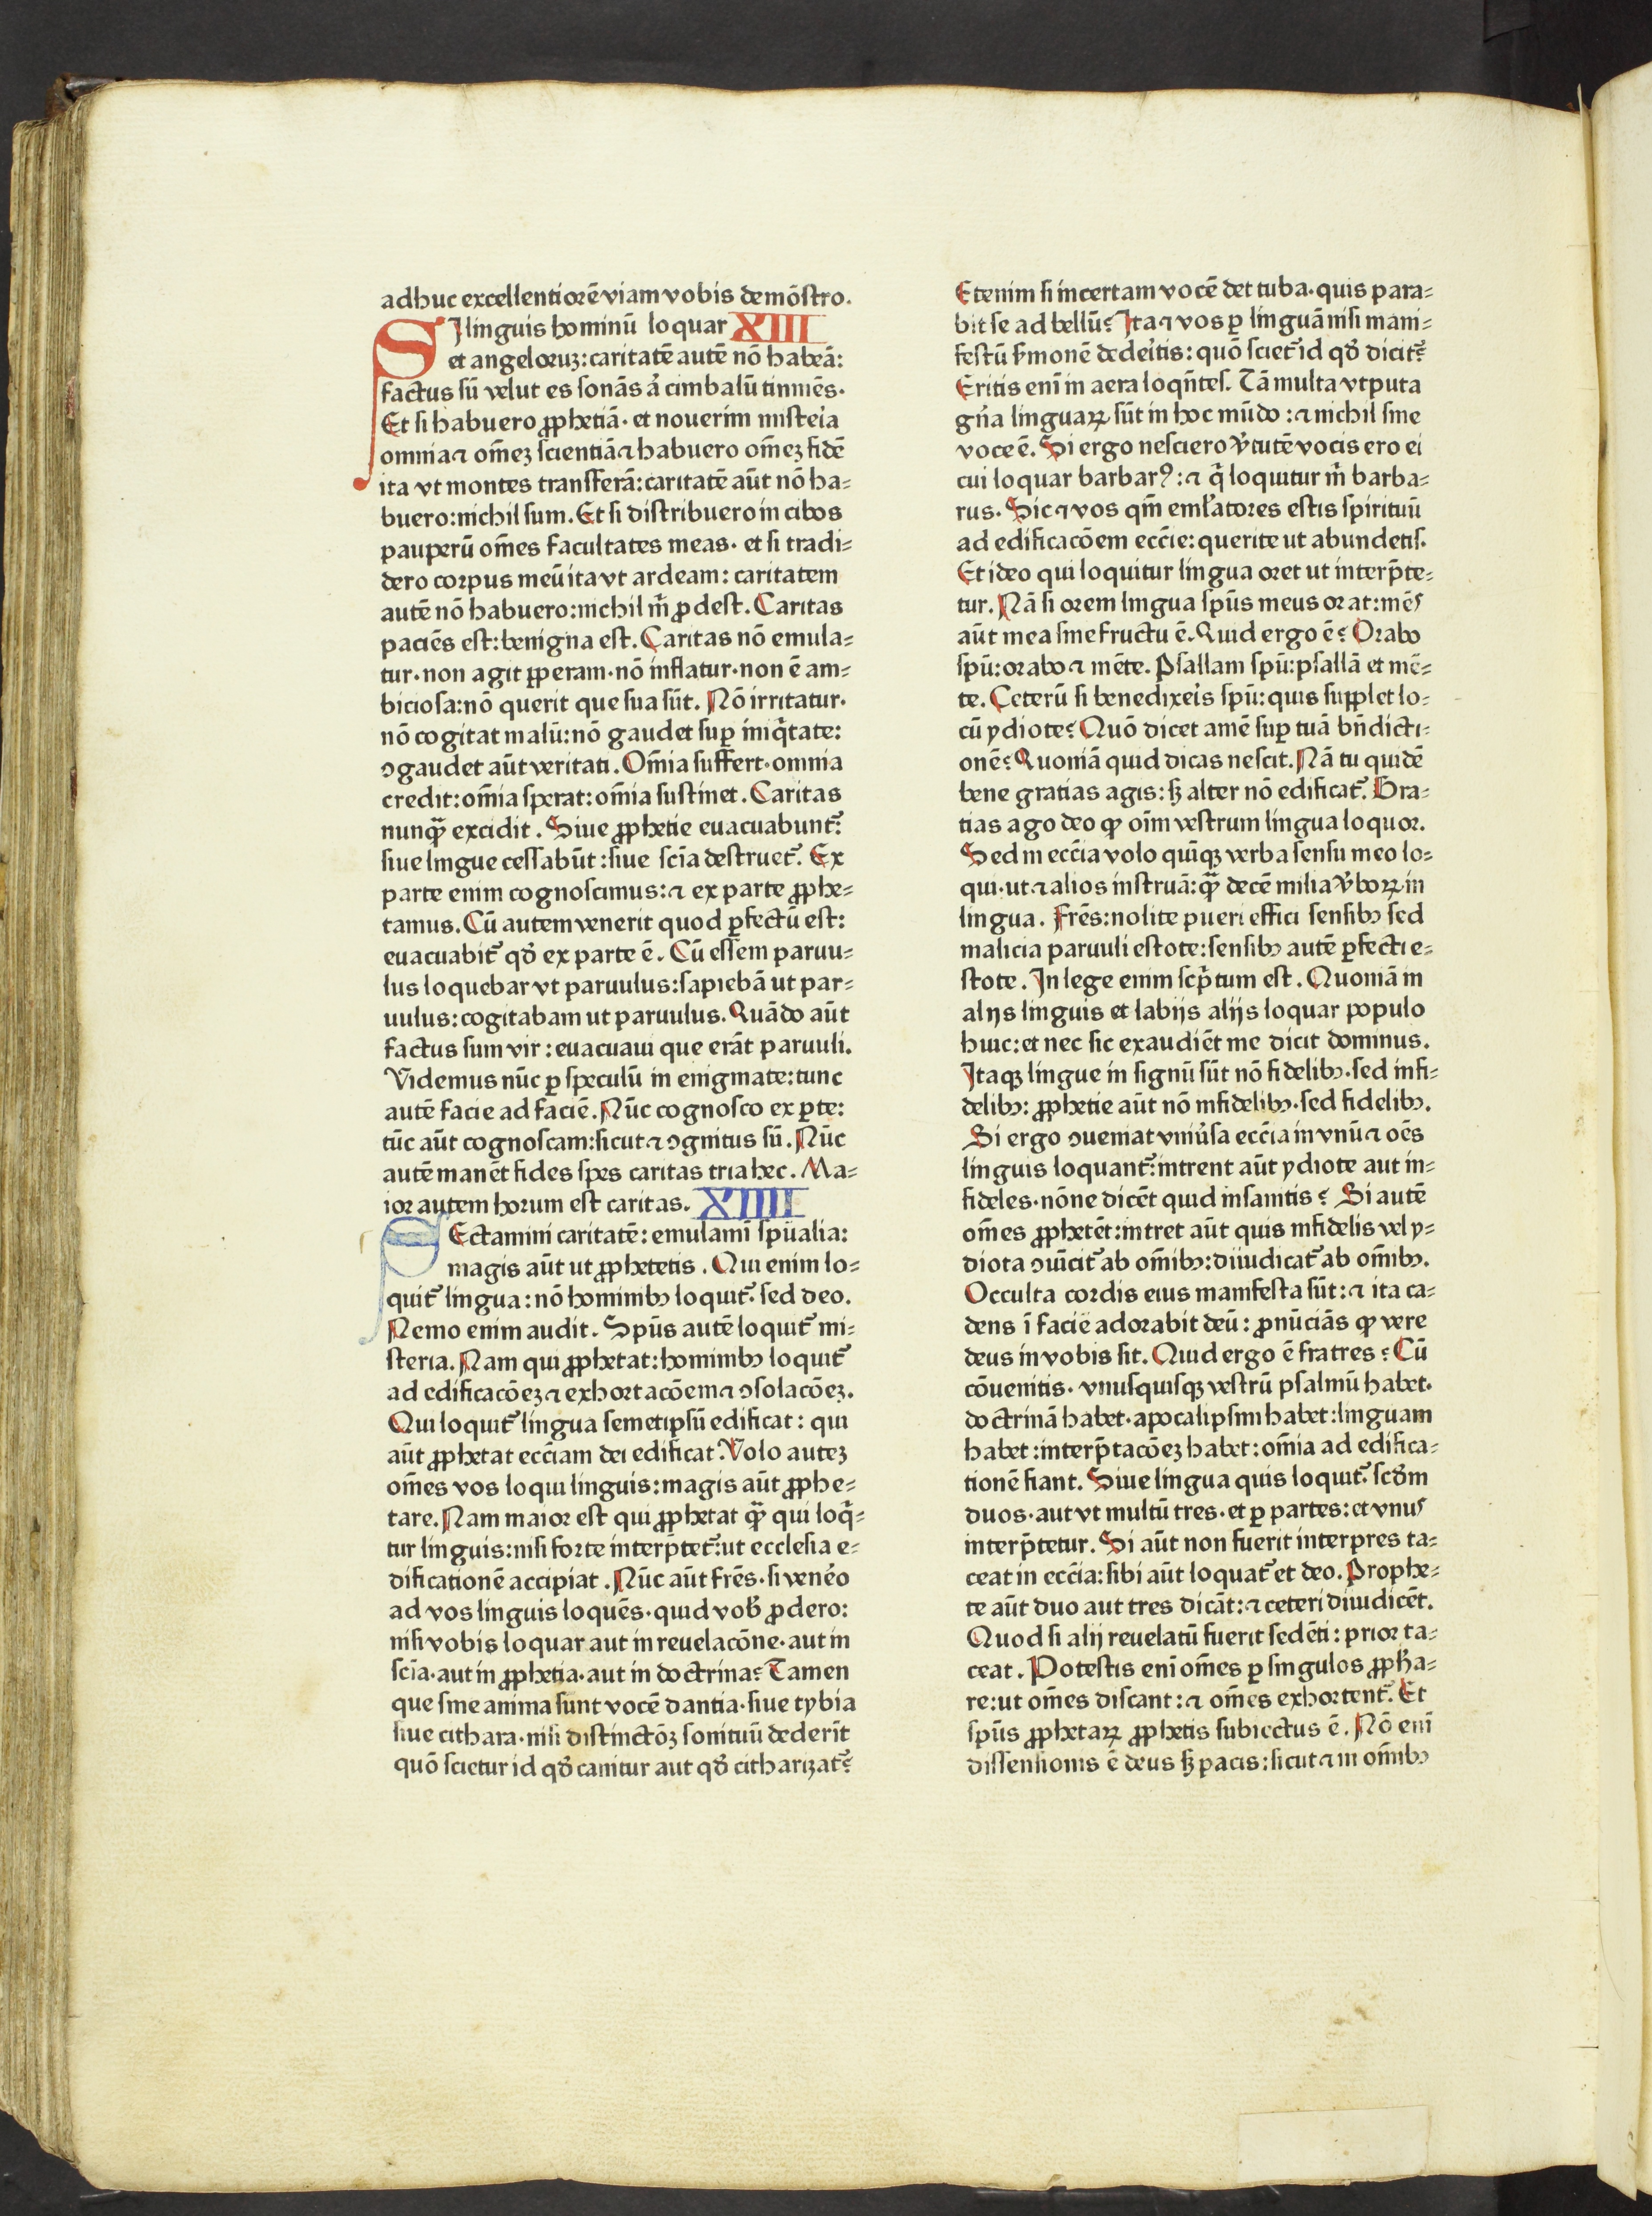 adhuc excellentiorē viam vobis demōstro.
SI linguis hominū loquar XIII
et angeloruꝫ: caritatē autē nō habeā:
factus sū velut es sonās aͥ cimbalū tinniēs.
Et si habuero ꝓphetiā· et nouerim misteͥia
omnia ⁊ om̄eꝫ scientiā ⁊ habuero om̄eꝫ fidē
ita vt montes transferā: caritatē aūt nō ha⸗
buero: nichil sum. Et si distribuero in cibos
pauperū om̄es facultates meas· et si tradi⸗
dero corpus meū ita vt ardeam: caritatem
autē nō habuero: nichil m̄ ꝓdest. Caritas
paciēs est: benigna est. Caritas nō emula⸗
tur· non agit ꝑperam· nō inflatur· non ē am⸗
biciosa: nō querit que sua sūt. Nō irritatur·
nō cogitat malū: nō gaudet suꝑ iniq̄tate:
ꝯgaudet aūt veritati. Om̄ia suffert· omnia
credit: om̄ia sperat: om̄ia sustinet. Caritas
nunꝙ̄ excidit. Siue ꝓphetie euacuabunt᷑:
siue lingue cessabūt: siue scīa destruet᷑. Ex
parte enim cognoscimus: ⁊ ex parte ꝓphe⸗
tamus. Cū autem venerit quod ꝑfectū est:
euacuabit᷑ qd̓ ex parte ē. Cū essem paruu⸗
lus loquebar vt paruulus: sapiebā ut par⸗
uulus: cogitabam ut paruulus. Quādo aūt
factus sum vir: euacuaui que erāt paruuli.
Videmus nūc ꝑ speculū in enigmate: tunc
autē facie ad faciē. Nūc cognosco ex ꝑte:
tūc aūt cognoscam: sicut ⁊ ꝯgnitus sū. Nūc
autē manēt fides spes caritas tria hec. Ma⸗
ior autem horum est caritas. XIIII
SEctamini caritatē: emulamī spūalia:
magis aūt ut ꝓphetetis. Qui enim lo⸗
quit᷑ lingua: nō hominibꝯ loquit᷑· sed deo.
Nemo enim audit. Spūs autē loquit᷑ mi⸗
steria. Nam qui ꝓphetat: hominibꝯ loquit᷑
ad edificacōeꝫ ⁊ exhortacōem ⁊ ꝯsolacōeꝫ.
Qui loquit᷑ lingua semetipsū edificat: qui
aūt ꝓphetat ecc̄iam dei edificat. Volo auteꝫ
om̄es vos loqui linguis: magis aūt ꝓphe⸗
tare. Nam maior est qui ꝓphetat ꝙ̄ qui loq̄⸗
tur linguis: nisi forte interp̄tet᷑: ut ecclesia e⸗
dificationē accipiat. Nūc aūt frēs· si venēo
ad vos linguis loquēs· quid vob̓ ꝓdero:
nisi vobis loquar aut in reuelacōne· aut in
scīa· aut in ꝓphetia· aut in doctrina? Tamen
que sine anima sunt vocē dantia· siue tybia
siue cithara· nisi distinctōꝫ sonituū dederīt
quō scietur id qd̓ canitur aut qd̓ citharizat᷑?
Etenim si incertam vocē det tuba· quis para⸗
bit se ad bellū? Ita ⁊ vos ꝑ linguā nisi mani⸗
festū ẜmonē dedeͥitis: quō sciet᷑ id qd̓ dicit᷑?
Eritis enī in aera loqn̄tes. Tā multa vtputa
gn̄a linguaꝝ sūt in hoc mūdo: ⁊ nichil sine
voce ē. Si ergo nesciero v̓tutē vocis ero ei
cui loquar barbarꝰ: ⁊ q̄ loquitur m̄ barba⸗
rus. Sic ⁊ vos qm̄ eml̓atores estis spirituū
ad edificacōem ecc̄ie: querite ut abundetis.
Et ideo qui loquitur lingua oret ut interp̄te⸗
tur. Nā si orem lingua spūs meus orat: mēs
aūt mea sine fructu ē. Quid ergo ē? Orabo
spū: orabo ⁊ mēte. Psallam spū: psallā et mē⸗
te. Ceterū si benedixeͥis spū: quis supplet lo⸗
cū ydiote? Quō dicet amē suꝑ tuā bn̄dicti⸗
onē? Quoniā quid dicas nescit. Nā tu quidē
bene gratias agis: sꝫ alter nō edificat᷑. Gra⸗
tias ago deo ꝙ oīm vestrum lingua loquor.
Sed in ecc̄ia volo quīqꝫ verba sensu meo lo⸗
qui· ut ⁊ alios instruā: ꝙ̄ decē milia v̓boꝝ in
lingua. Frēs: nolite pueri effici sensibꝯ sed
malicia paruuli estote: sensibꝯ autē ꝑfecti e⸗
stote. In lege enim scp̄tum est. Quoniā in
alijs linguis et labijs alijs loquar populo
huic: et nec sic exaudiēt me dicit dominus.
Itaqꝫ lingue in signū sūt nō fidelibꝯ· sed infi⸗
delibꝯ: ꝓphetie aūt nō infidelibꝯ· sed fidelibꝯ.
Si ergo ꝯueniat vniu̓sa ecc̄ia in vnū ⁊ oēs
linguis loquant᷑: intrent aūt ydiote aut in⸗
fideles· nōne dicēt quid insanitis? Si autē
om̄es ꝓphetēt: intret aūt quis infidelis vel y⸗
diota ꝯuīcit᷑ ab om̄ibꝯ: diiudicat᷑ ab om̄ibꝯ.
Occulta cordis eius manifesta sūt: ⁊ ita ca⸗
dens ī faciē adorabit deū: ꝓnūciās ꝙ vere
deus in vobis sit. Quid ergo ē fratres? Cū
cōuenitis· vnusquisqꝫ vestrū psalmū habet·
doctrinā habet· apocalipsim habet: linguam
habet: interp̄tacōeꝫ habet: om̄ia ad edifica⸗
tionē fiant. Siue lingua quis loquit᷑· scd̓m
duos· aut vt multū tres· et ꝑ partes: et vnus
interp̄tetur. Si aūt non fuerit interpres ta⸗
ceat in ecc̄ia: sibi aūt loquat᷑ et deo. Prophe⸗
te aūt duo aut tres dicāt: ⁊ ceteri diiudicēt.
Quod si alij reuelatū fuerit sedēti: prior ta⸗
ceat. Potestis enī om̄es ꝑ singulos ꝓph̓a⸗
re: ut om̄es discant: ⁊ om̄es exhortent᷑. Et
spūs ꝓphetaꝝ ꝓphetis subiectus ē. Nō enī
dissensionis ē deus sꝫ pacis: sicut ⁊ in om̄ibꝯ